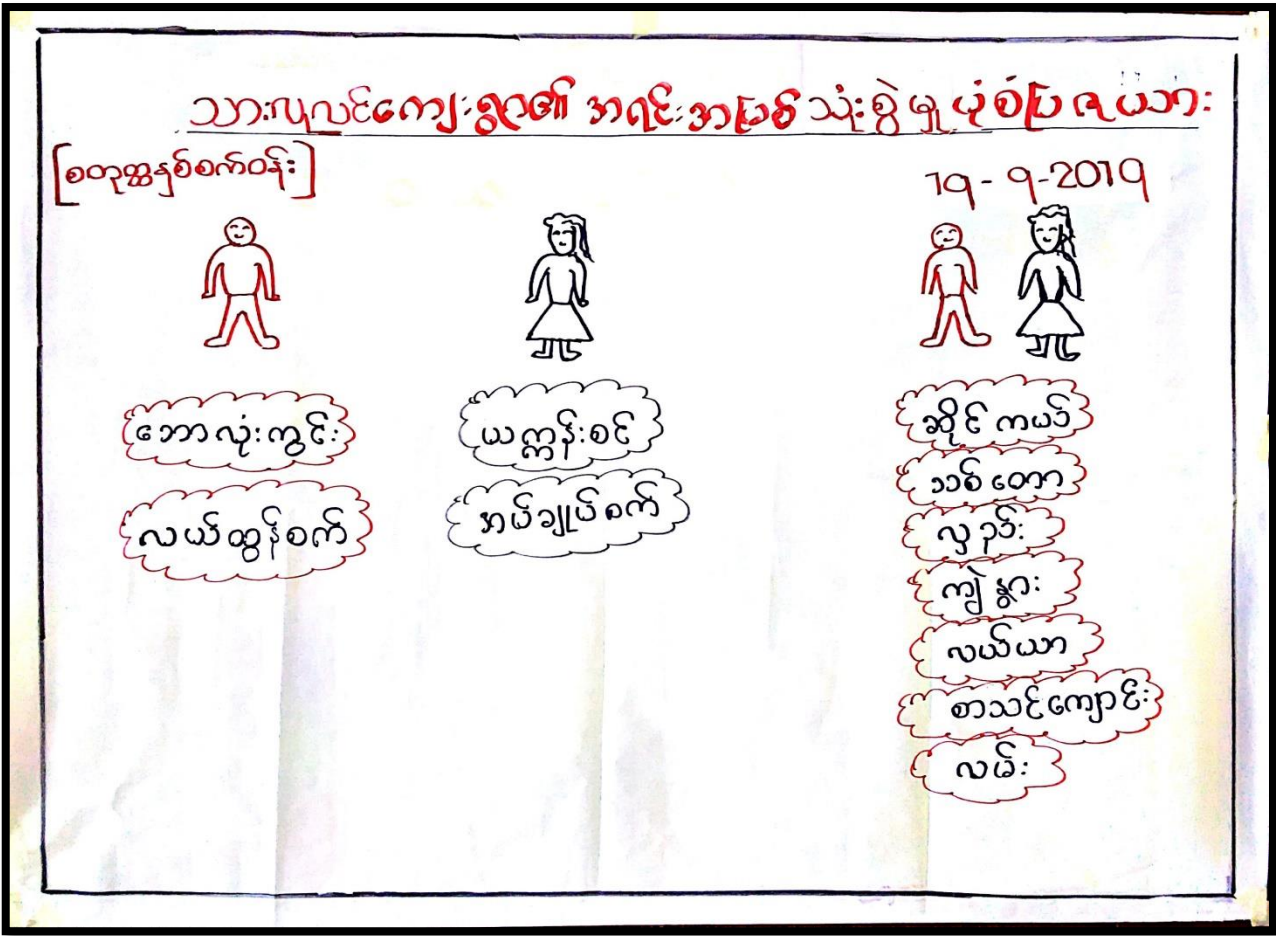 သားလုလင်ကျေးရွာ၏ အရင်းအမြစ် သုံးစွဲမှု ပုံစံပြ ဇယား
[စတုတ္ထနှစ်စက်ဝန်း]
19-9-2019
ဘောလုံးကွင်း
လယ်ထွန်စက်
ယက္ကန်းစင်
အပ်ချုပ်စက်
ဆိုင်ကယ်
သစ်တော
လှည်း
ကျွဲနွား
လယ်ယာ
စာသင်ကျောင်း
လမ်း